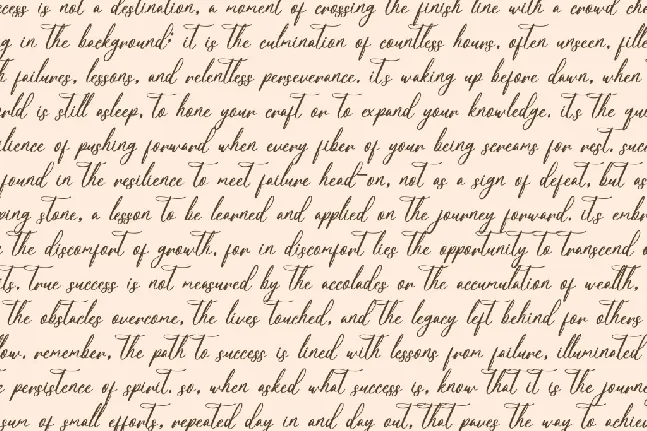 ccess is not a destination, a moment of crossing the finish line with a crowd che
g in the background; it is the culmination of countless hours, often unseen, fille
h failures, lessons, and relentless perseverance. it's waking up before dawn, when
orld is still asleep, to hone your craft or to expand your knowledge. it's the qui
ilience of pushing forward when every fiber of your being screams for rest. succ
found in the resilience to meet failure head-on, not as a sign of defeat, but as
ping stone, a lesson to be learned and applied on the journey forward. it's embr
the discomfort of growth, for in discomfort lies the opportunity to transcend o
its. true success is not measured by the accolades or the accumulation of wealth,
the obstacles overcome, the lives touched, and the legacy left behind for others
low. remember, the path to success is lined with lessons from failure, illuminated
e persistence of spirit. so, when asked what success is, know that it is the journe
sum of small efforts, repeated day in and day out, that paves the way to achiev